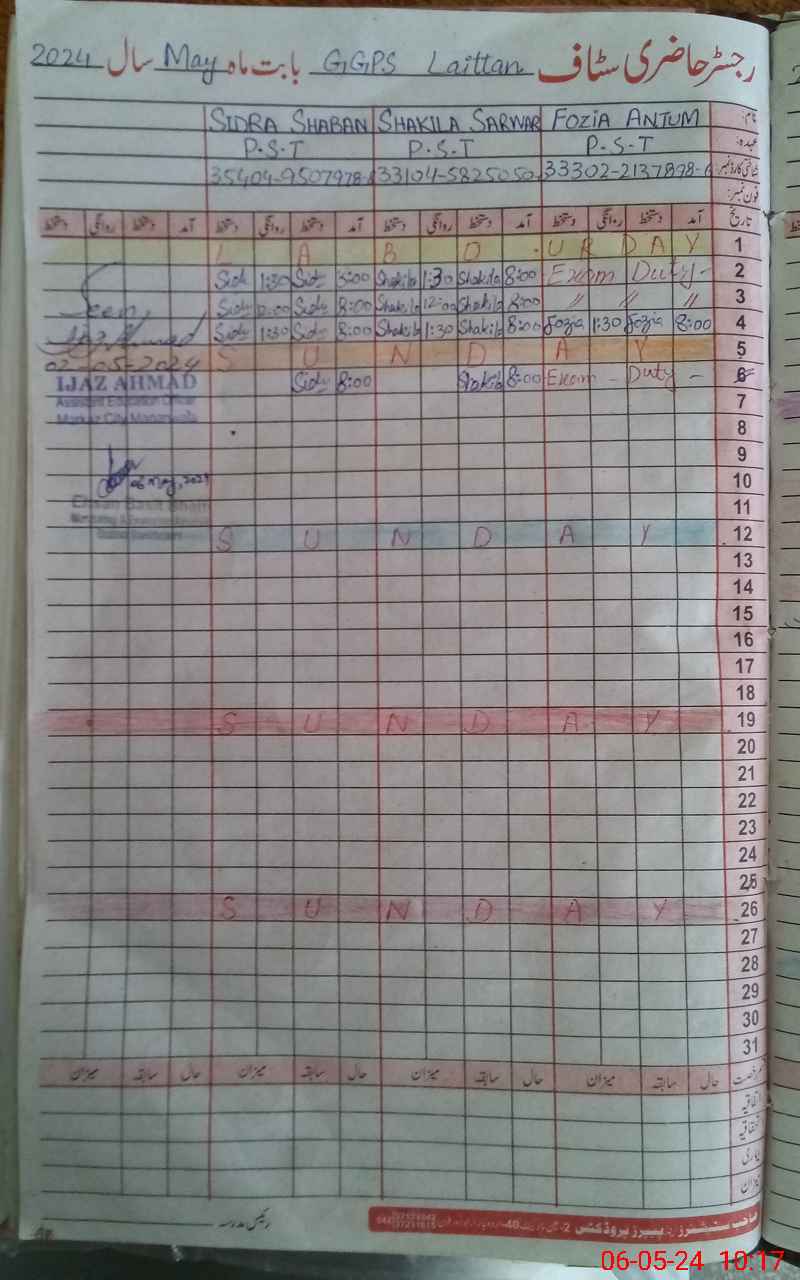 رجسٹر حاضری سٹاف GGPS Laittan بابت ماہ May سال 2024
نام: FOZIA ANJUM SHAKILA SARWAR SIDRA SHABAN
عہدہ: P.S.T P.S.T P.S.T
شناختی کارڈ نمبر: 33302-2137898- 33104-5825050- 35404-9507978-
فون نمبر:
تاریخ آمد دستخط روانگی دستخط آمد دستخط روانگی دستخط آمد دستخط روانگی دستخط آمد دستخط روانگی دستخط
L A B O U R D A Y 1
Sid 1:30 Sid 8:00 Shakila 1:30 Shakila 8:00 Exam Duty - 2
Sid 12:00 Sid 8:00 Shakila 12:00 Shakila 8:00 〃 〃 〃 3
Seen
Sid 1:30 Sid 8:00 Shakila 1:30 Shakila 8:00 Fozia 1:30 Fozia 8:00 4
Ijaz Ahmad
S U N D A Y 5
02-05-2024
Sid 8:00 Shakila 8:00 Exam - Duty - 6
IJAZ AHMAD
Assistant Education Officer
7
Markaz City Mananwala
8
9
06 May, 2024 10
11
S U N D A Y 12
13
14
15
16
17
18
S U N D A Y 19
20
21
22
23
24
25
S U N D A Y 26
27
28
29
30
31
رخصت حال سابقہ میزان حال سابقہ میزان حال سابقہ میزان حال سابقہ میزان
اتفاقیہ
بیماری
میزان
رئیس مدرسہ
06-05-24 10:17